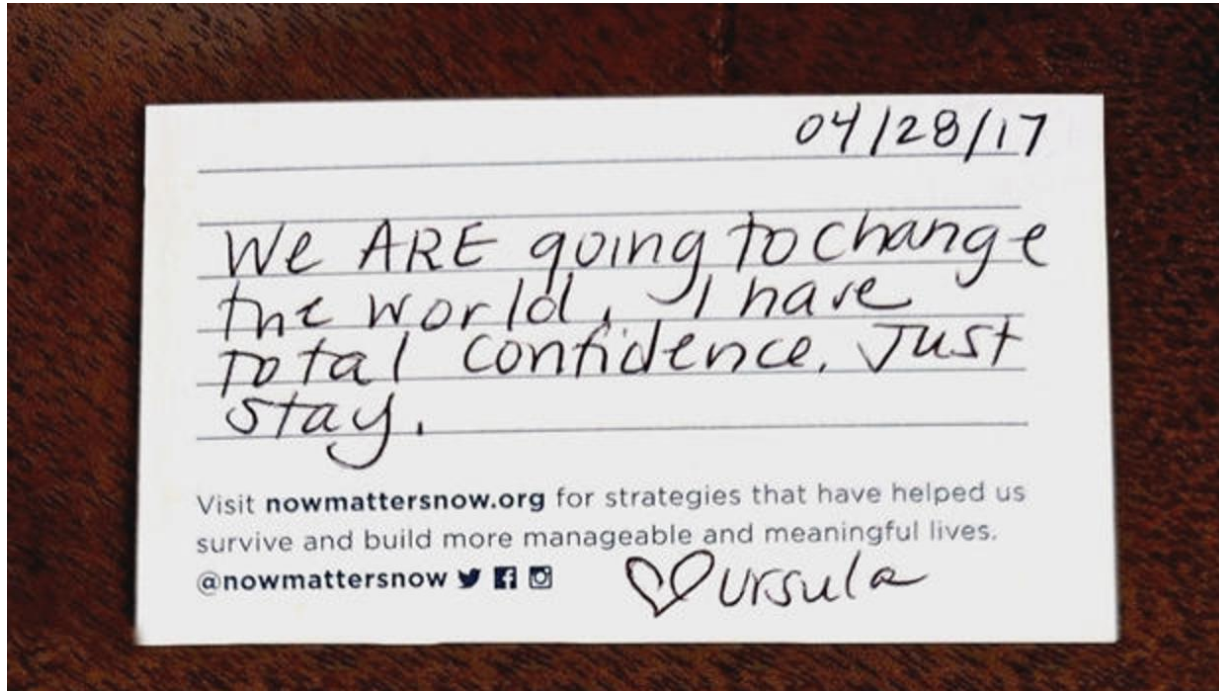 04/28/17
We ARE going to change
the world. I have
total confidence. Just
stay.
Visit nowmattersnow.org for strategies that have helped us
survive and build more manageable and meaningful lives.
@nowmattersnow
Ursula